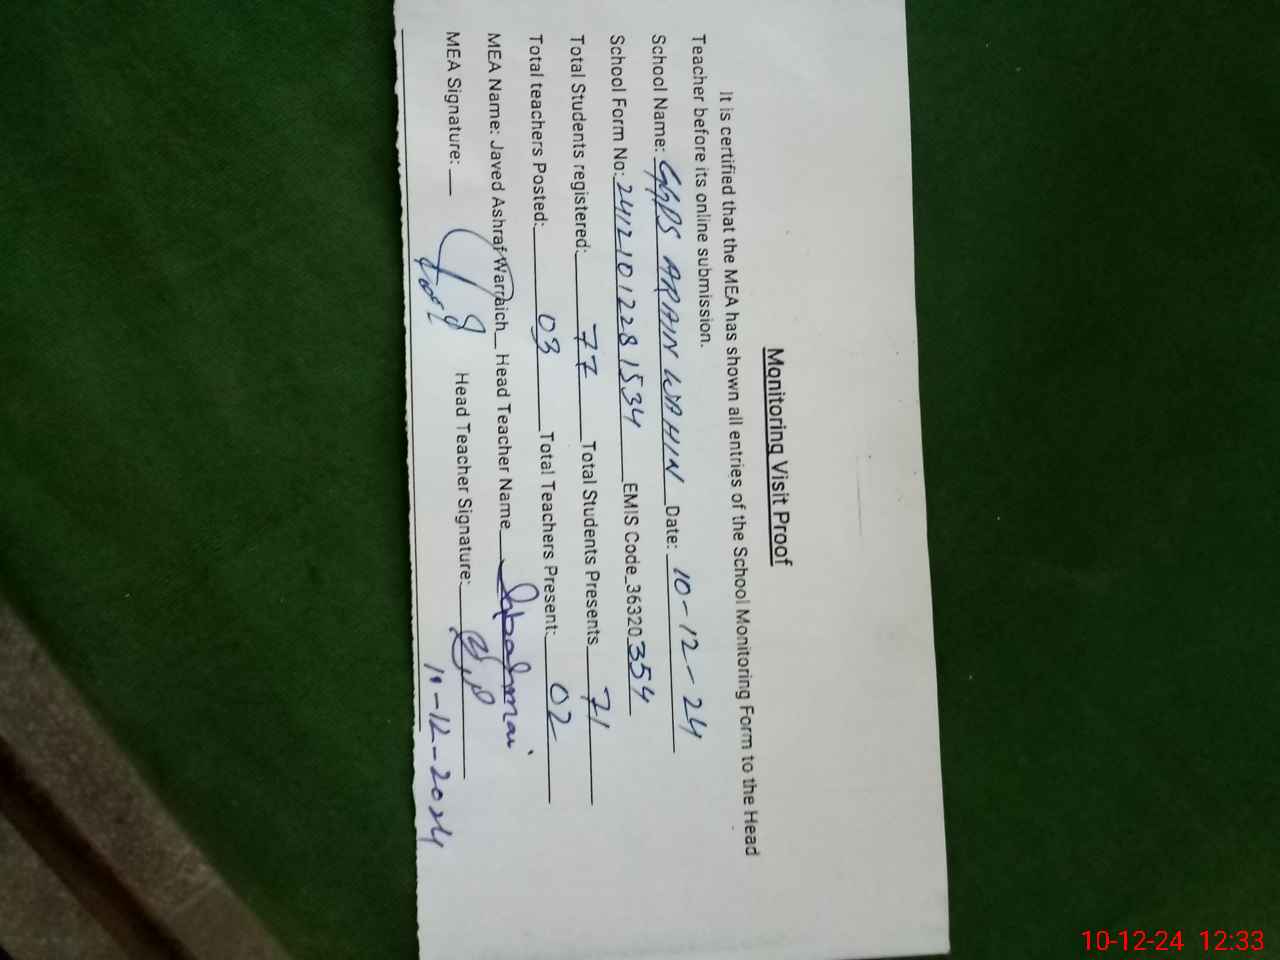 Monitoring Visit Proof
It is certified that the MEA has shown all entries of the School Monitoring Form to the Head
Teacher before its online submission.
School Name: GGPS ARAIN WAHIN Date: 10-12-24
School Form No: 24121012281534 EMIS Code_36320354
Total Students registered: 77 Total Students Presents 71
Total teachers Posted: 03 Total Teachers Present: 02
MEA Name: Javed Ashraf Warraich Head Teacher Name
MEA Signature: Head Teacher Signature:
10-12-2024
10-12-24 12:33